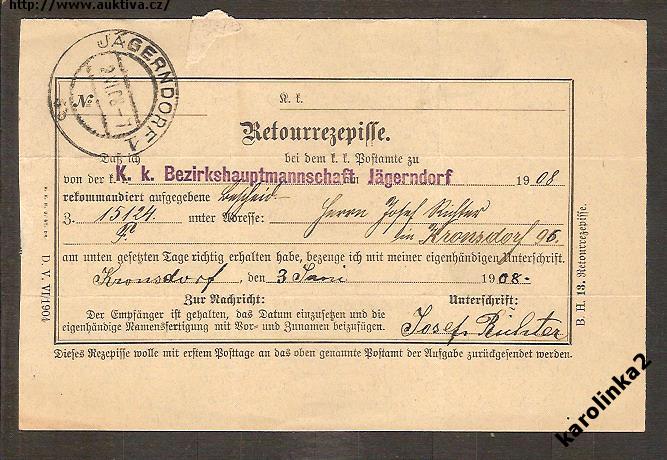 http://www.auktiva.cz/
JÄGERNDORF 1
No
K. k.
Retourrezepisse.
Daß ich bei dem k. k. Postamte zu
von der k. K. k. Bezirkshauptmannschaft Jägerndorf 1908
rekommandiert aufgegebene Bescheid
Z. 15124 unter Adresse: Herrn Josef Richter
P. in Kronsdorf 96.
am unten gesetzten Tage richtig erhalten habe, bezeuge ich mit meiner eigenhändigen Unterschrift.
Kronsdorf, den 3 Juni 1908.
Zur Nachricht:
Der Empfänger ist gehalten, das Datum einzusetzen und die
eigenhändige Namensfertigung mit Vor- und Zunamen beizufügen.
Unterschrift:
Josef Richter
Dieses Rezepisse wolle mit erstem Posttage an das oben genannte Postamt der Aufgabe zurückgesendet werden.
D. V. VI/1904
B. H. 13. Retourrezepisse.
karolinka2